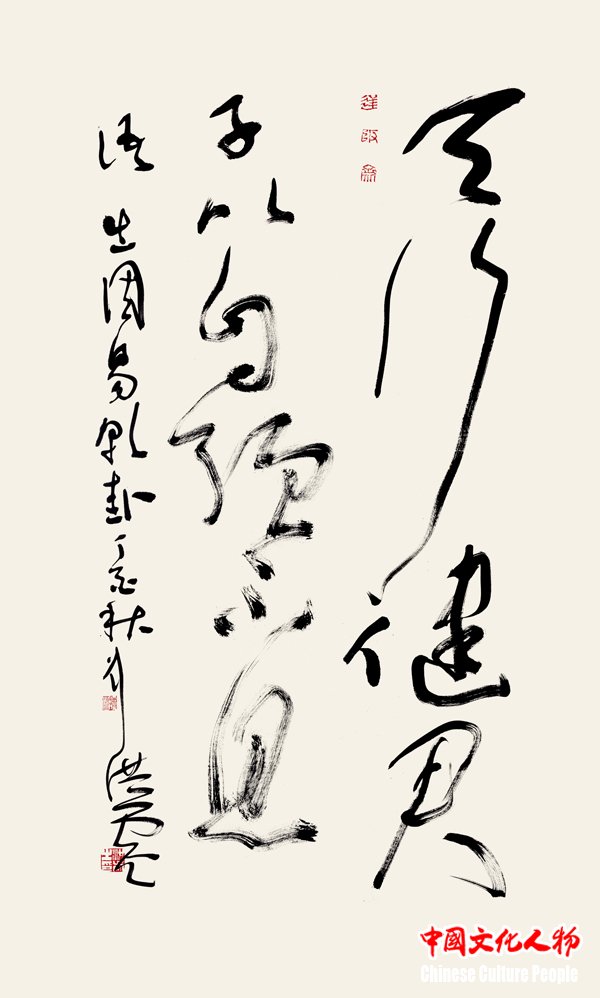 天行健君
子以自强不息
语出周易乾卦丁亥秋月洪
中國文化人物
Chinese Culture People